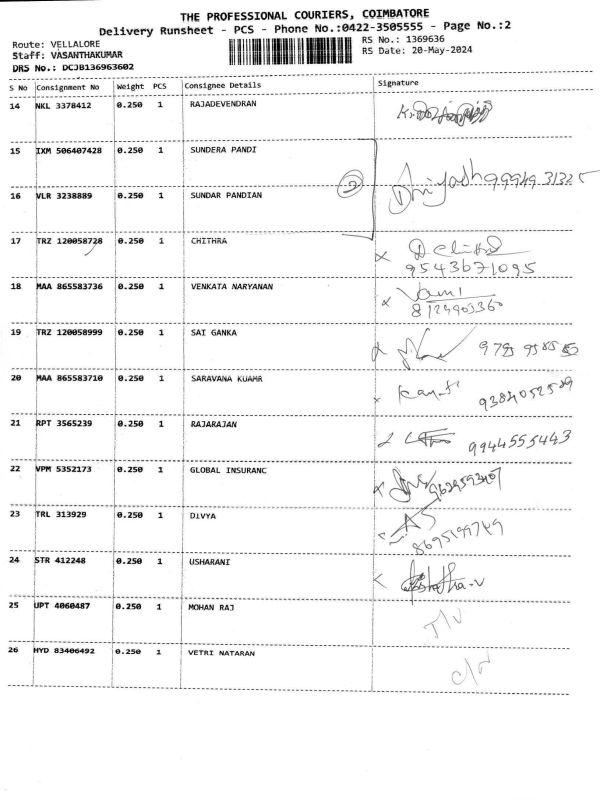 THE PROFESSIONAL COURIERS, COIMBATORE
Delivery Runsheet - PCS - Phone No.:0422-3505555 - Page No.:2
Route: VELLALORE
Staff: VASANTHAKUMAR
DRS No.: DCJB136963602
RS No.: 1369636
RS Date: 20-May-2024
S No Consignment No Weight PCS Consignee Details Signature
14 NKL 3378412 0.250 1 RAJADEVENDRAN
15 IXM 506407428 0.250 1 SUNDERA PANDI
16 VLR 3238889 0.250 1 SUNDAR PANDIAN 2 99949 31325
17 TRZ 120058728 0.250 1 CHITHRA
9543671095
18 MAA 865583736 0.250 1 VENKATA NARYANAN
19 TRZ 120058999 0.250 1 SAI GANKA
20 MAA 865583710 0.250 1 SARAVANA KUAMR
21 RPT 3565239 0.250 1 RAJARAJAN 9944555443
22 VPM 5352173 0.250 1 GLOBAL INSURANC
23 TRL 313929 0.250 1 DIVYA AS
8695199749
24 STR 412248 0.250 1 USHARANI
25 UPT 4060487 0.250 1 MOHAN RAJ
26 HYD 83406492 0.250 1 VETRI NATARAN